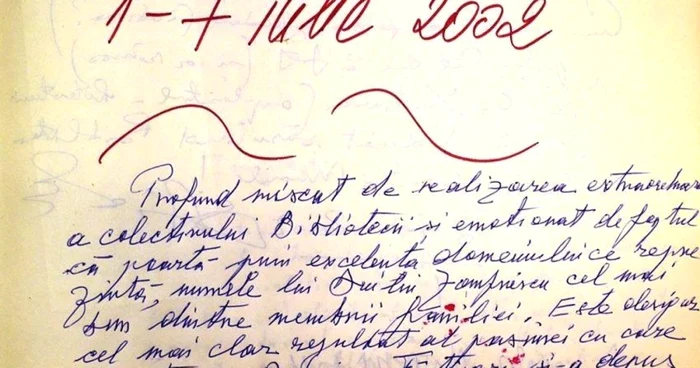 1 - 7 iulie 2002
Profund mișcat de realizarea extraordinar
a colectivului Bibliotecii și emoționat de faptul
că poartă prin excelență domeniului ce repre
zintă, numele lui Duiliu Zamfirescu cel mai
bun dintre membrii familiei. Este desigur
cel mai clar rezultat al pasiunei cu care
și-a depus